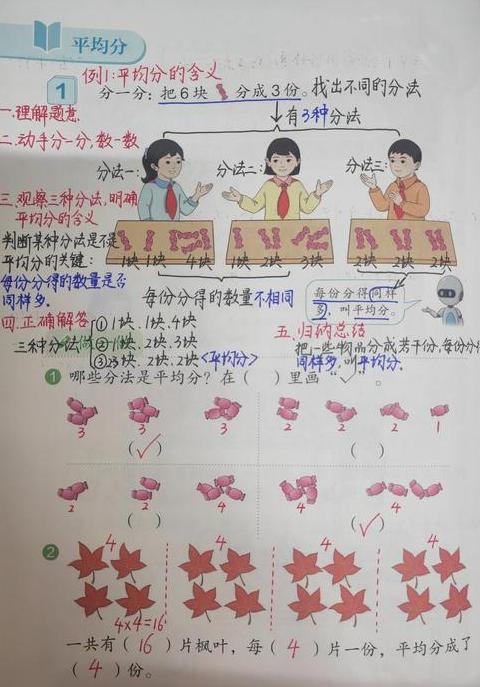 平均分
例1:平均分的含义
1
分一分:把6块 分成3份。找出不同的分法
有3种分法
一.理解题意.
二.动手分一分,数一数
分法一:
分法二:
分法三:
三.观察三种分法,明确
平均分的含义
判断某种分法是不是
平均分的关键:
每份分得的数量是否
同样多.
1块 1块 4块
1块 2块 3块
2块 2块 2块
每份分得的数量不相同
每份分得同样
多,叫平均分。
四.正确解答
三种分法
①1块.1块.4块
②1块.2块.3块
③2块.2块.2块<平均分>
五.归纳总结
把一些物品分成若干份,每份分得
同样多,叫平均分.
1 哪些分法是平均分?在( )里画“✓”。
3 3 3
2 2 2 1
(✓)
( )
2 2 4
4 4
( )
(✓)
2
4 4 4 4
4×4=16
一共有(16)片枫叶,每(4)片一份,平均分成了
(4)份。